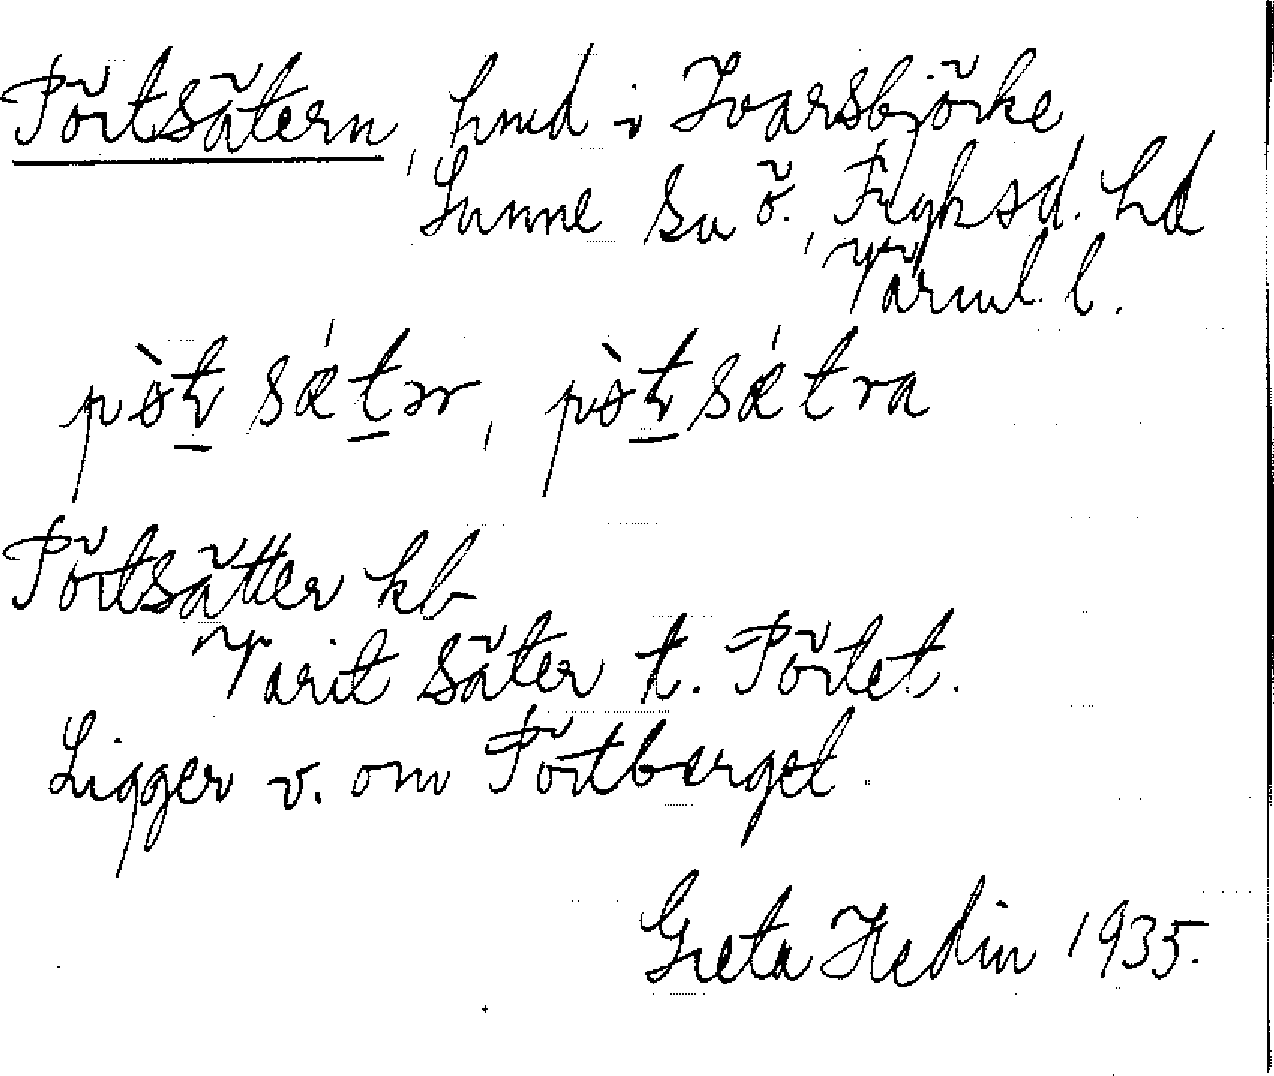 Pörtsätern, hmd i Ivarsbjörke
Sunne sn ö., Fryksd. hd
Värml. l.
pø̀t sǽtər, pø̀t sǽtra
Pörtsätter kb
Varit säter t. Pörtet.
Ligger v. om Pörtberget.
Greta Hedin 1935.